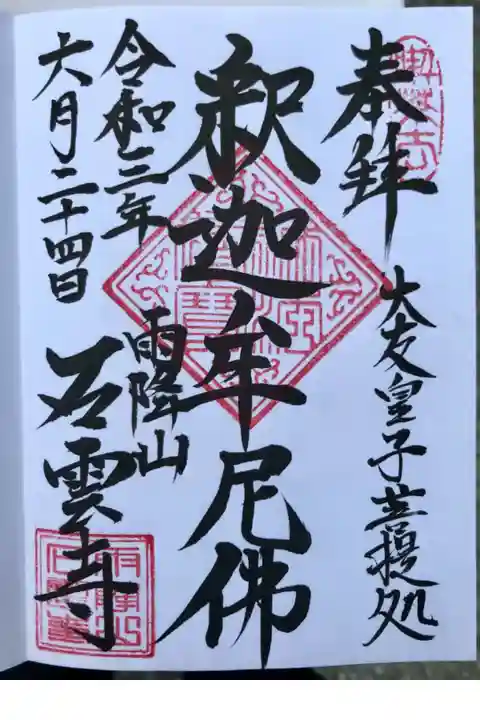 奉拝
大友皇子菩提処
釈迦牟尼佛
雨降山
石雲寺
令和三年
六月二十四日